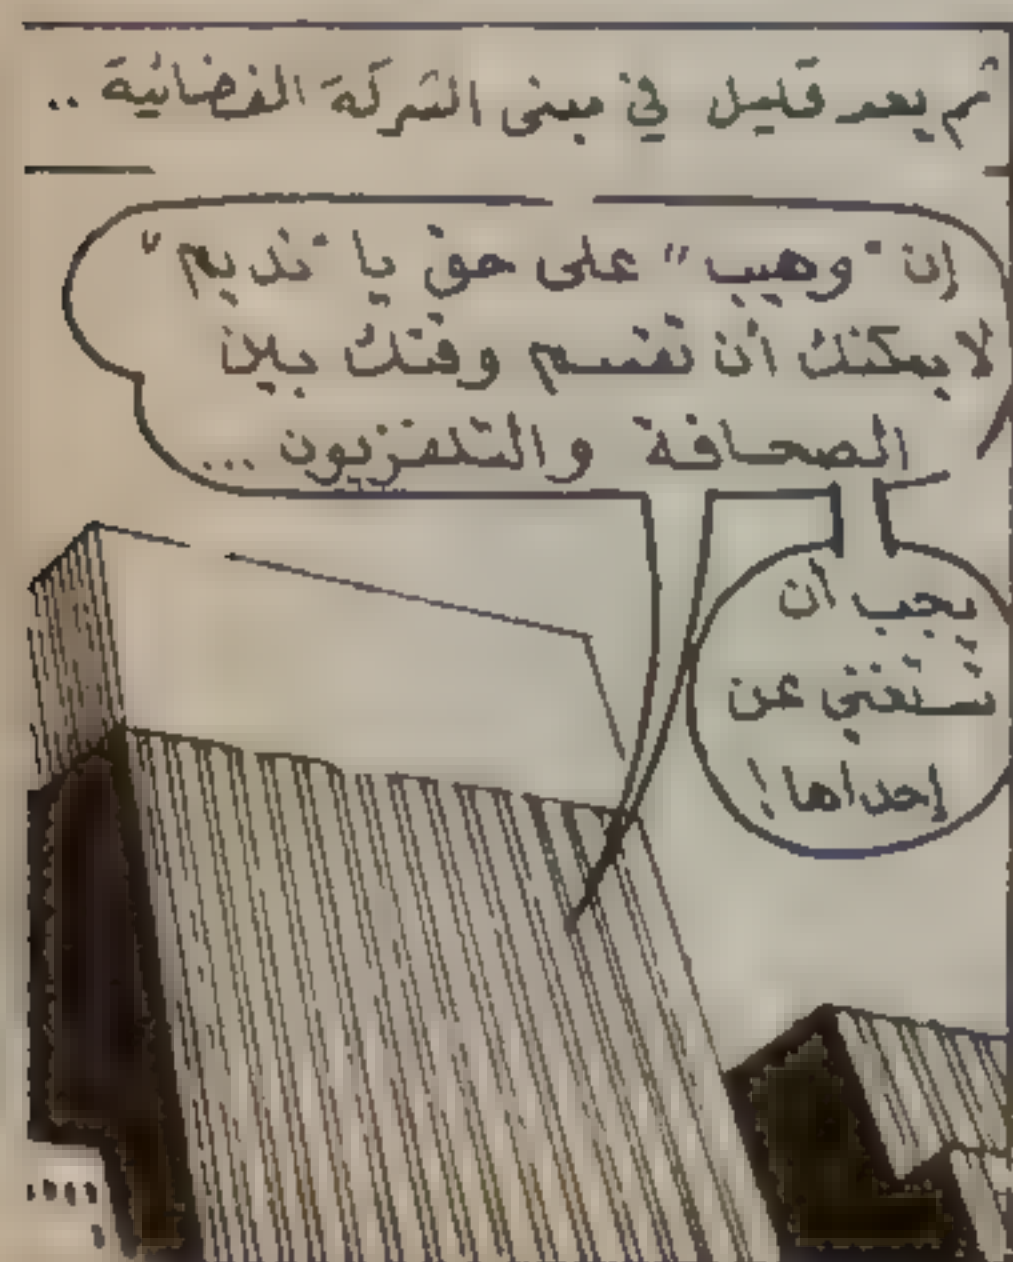 ثم بعد قليل في مبنى الشركة الفضائية ..
إن "وهيب" على حق يا "نديم"
لا يمكنك أن تقسم وقتك بين
الصحافة والتلفزيون ...
يجب أن
تستغني عن
إحداها !